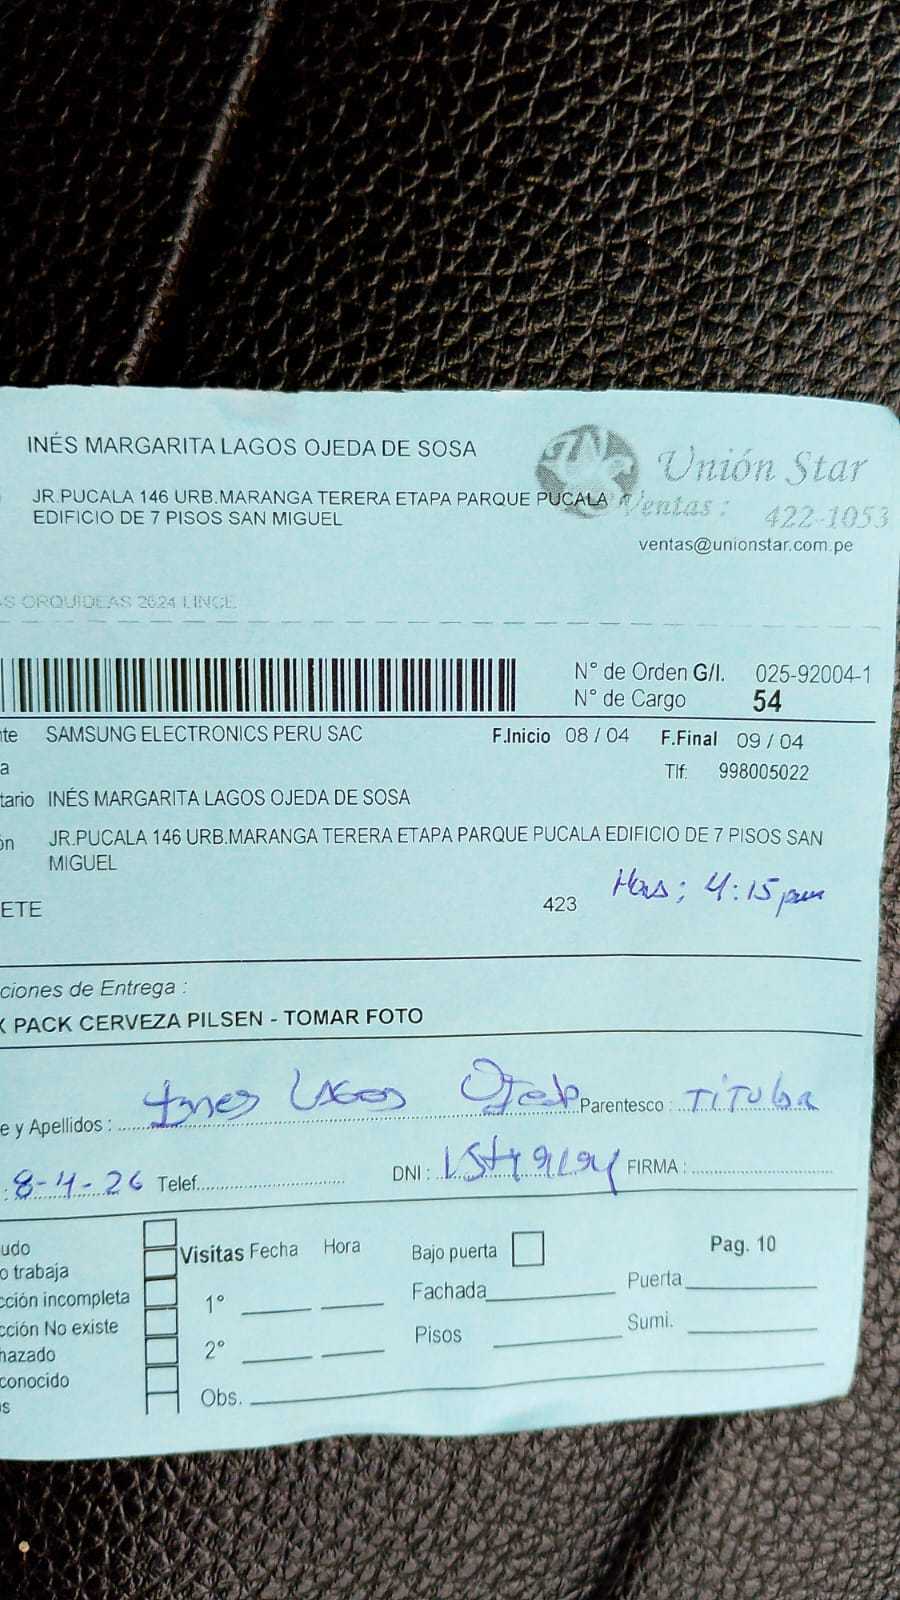 INÉS MARGARITA LAGOS OJEDA DE SOSA
Unión Star
JR.PUCALA 146 URB.MARANGA TERERA ETAPA PARQUE PUCALA
EDIFICIO DE 7 PISOS SAN MIGUEL
Ventas : 422-1053
ventas@unionstar.com.pe
AS ORQUIDEAS 2624 LINCE
N° de Orden G/I. 025-92004-1
N° de Cargo 54
nte SAMSUNG ELECTRONICS PERU SAC F.Inicio 08 / 04 F.Final 09 / 04
a Tlf: 998005022
tario INÉS MARGARITA LAGOS OJEDA DE SOSA
ón JR.PUCALA 146 URB.MARANGA TERERA ETAPA PARQUE PUCALA EDIFICIO DE 7 PISOS SAN
MIGUEL
ETE 423 Hrs; 4:15 pm
ciones de Entrega :
X PACK CERVEZA PILSEN - TOMAR FOTO
e y Apellidos : Ines Lagos Ojeda Parentesco : Titular
: 8-4-26 Telef. DNI : FIRMA :
udo
o trabaja
cción incompleta
cción No existe
hazado
conocido
s
Visitas Fecha Hora
1°
2°
Obs.
Bajo puerta
Fachada
Pisos
Pag. 10
Puerta
Sumi.